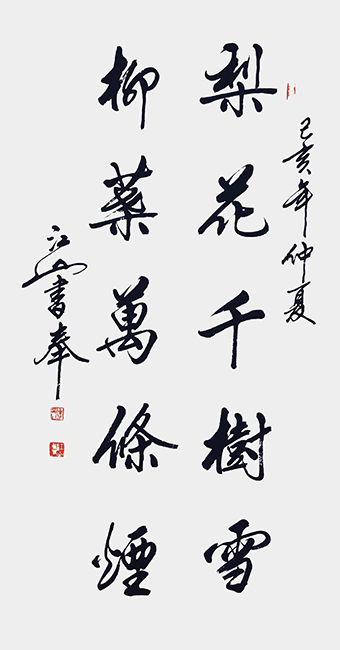 己亥年仲夏
梨花千樹雪
柳葉萬條煙
江山書奉